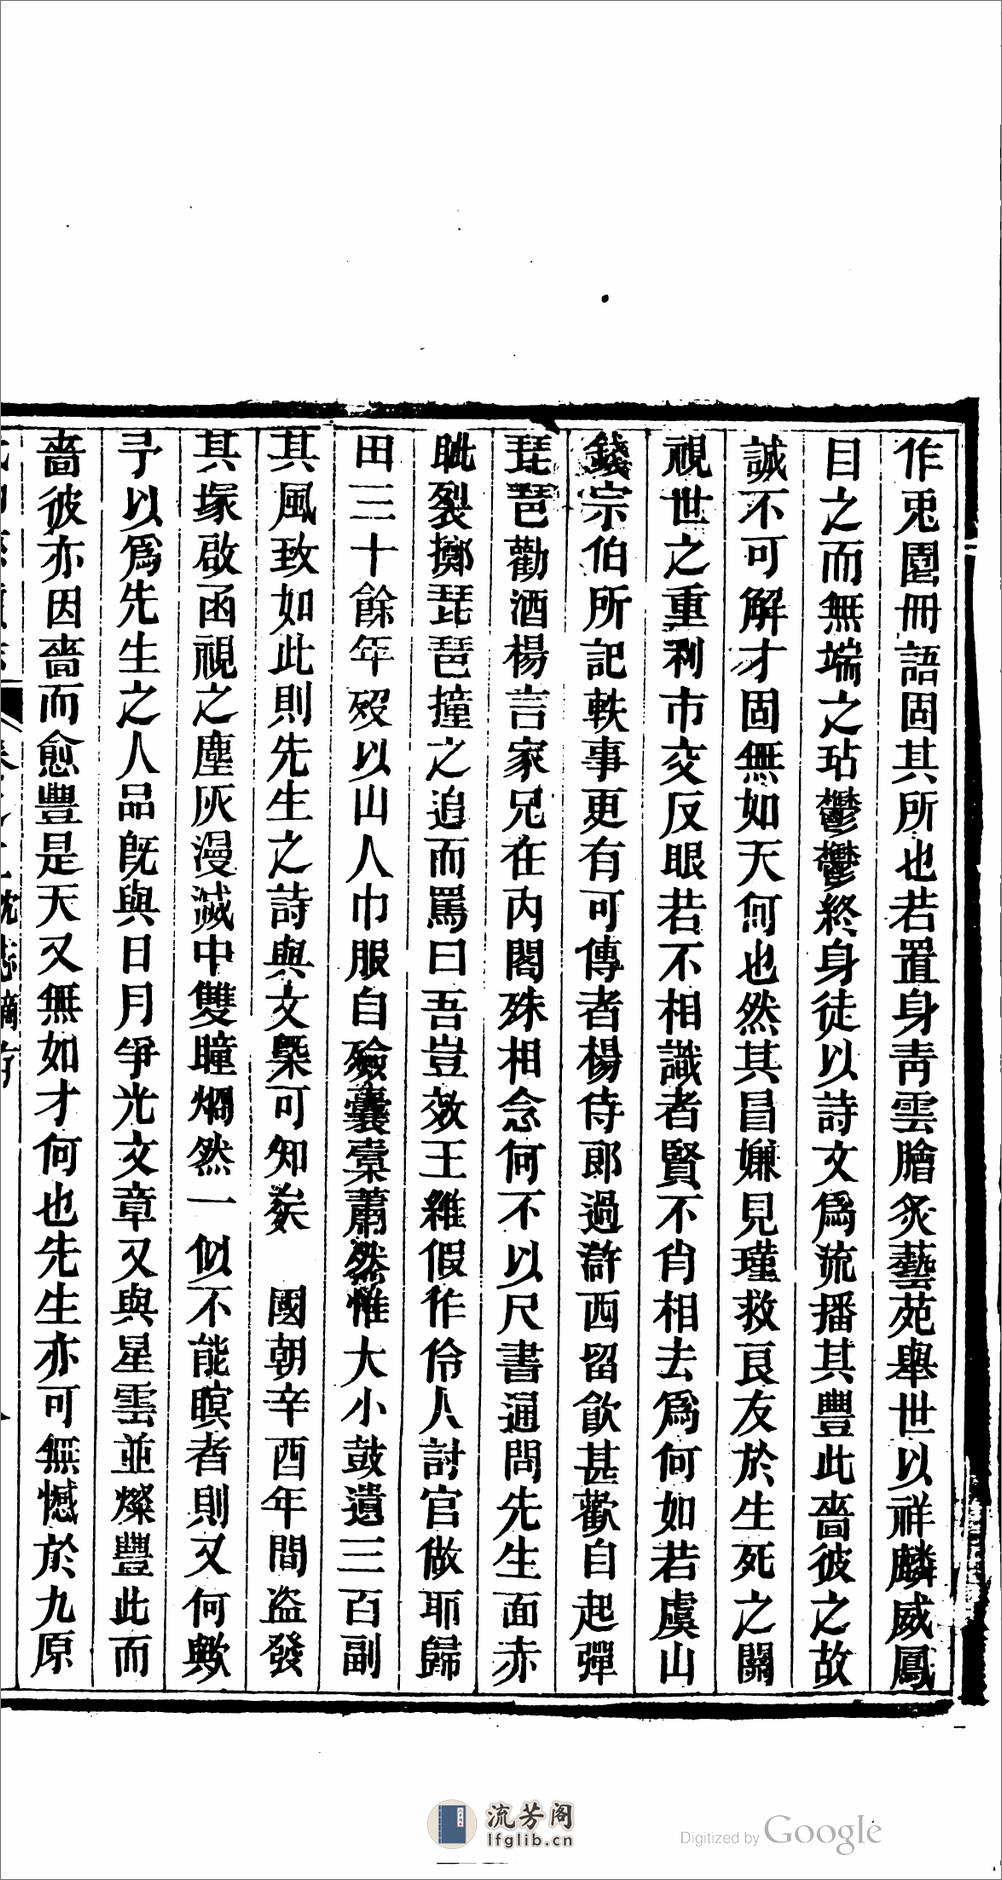 作兎園冊語固其所也若置身青雲膾炙藝苑舉世以祥麟威鳳
目之而無端之玷鬱鬱終身徒以詩文爲流播其豐此嗇彼之故
誠不可解才固無如天何也然其昌嫌見瑾救哀友於生死之關
視世之重利市交反眼若不相識者賢不肖相去爲何如若虞山
錢宗伯所記軼事更有可傳者楊侍郎過滸西留飲甚歡自起彈
琵琶勸酒楊言家兄在內閣殊相念何不以尺書通問先生面赤
眦裂擲琵琶撞之追而罵曰吾豈效王維假作伶人討官做耶歸
田三十餘年歿以山人巾服自殮囊橐蕭然惟大小鼓遺三百副
其風致如此則先生之詩與文槩可知矣　國朝辛酉年間盜發
其塚啟函視之塵灰漫滅中雙瞳烱然一似不能瞑者則又何歟
予以爲先生之人品旣與日月爭光文章又與星雲並燦豐此而
嗇彼亦因嗇而愈豐是天又無如才何也先生亦可無憾於九原
流芳阁
lfglib.cn
Digitized by Google